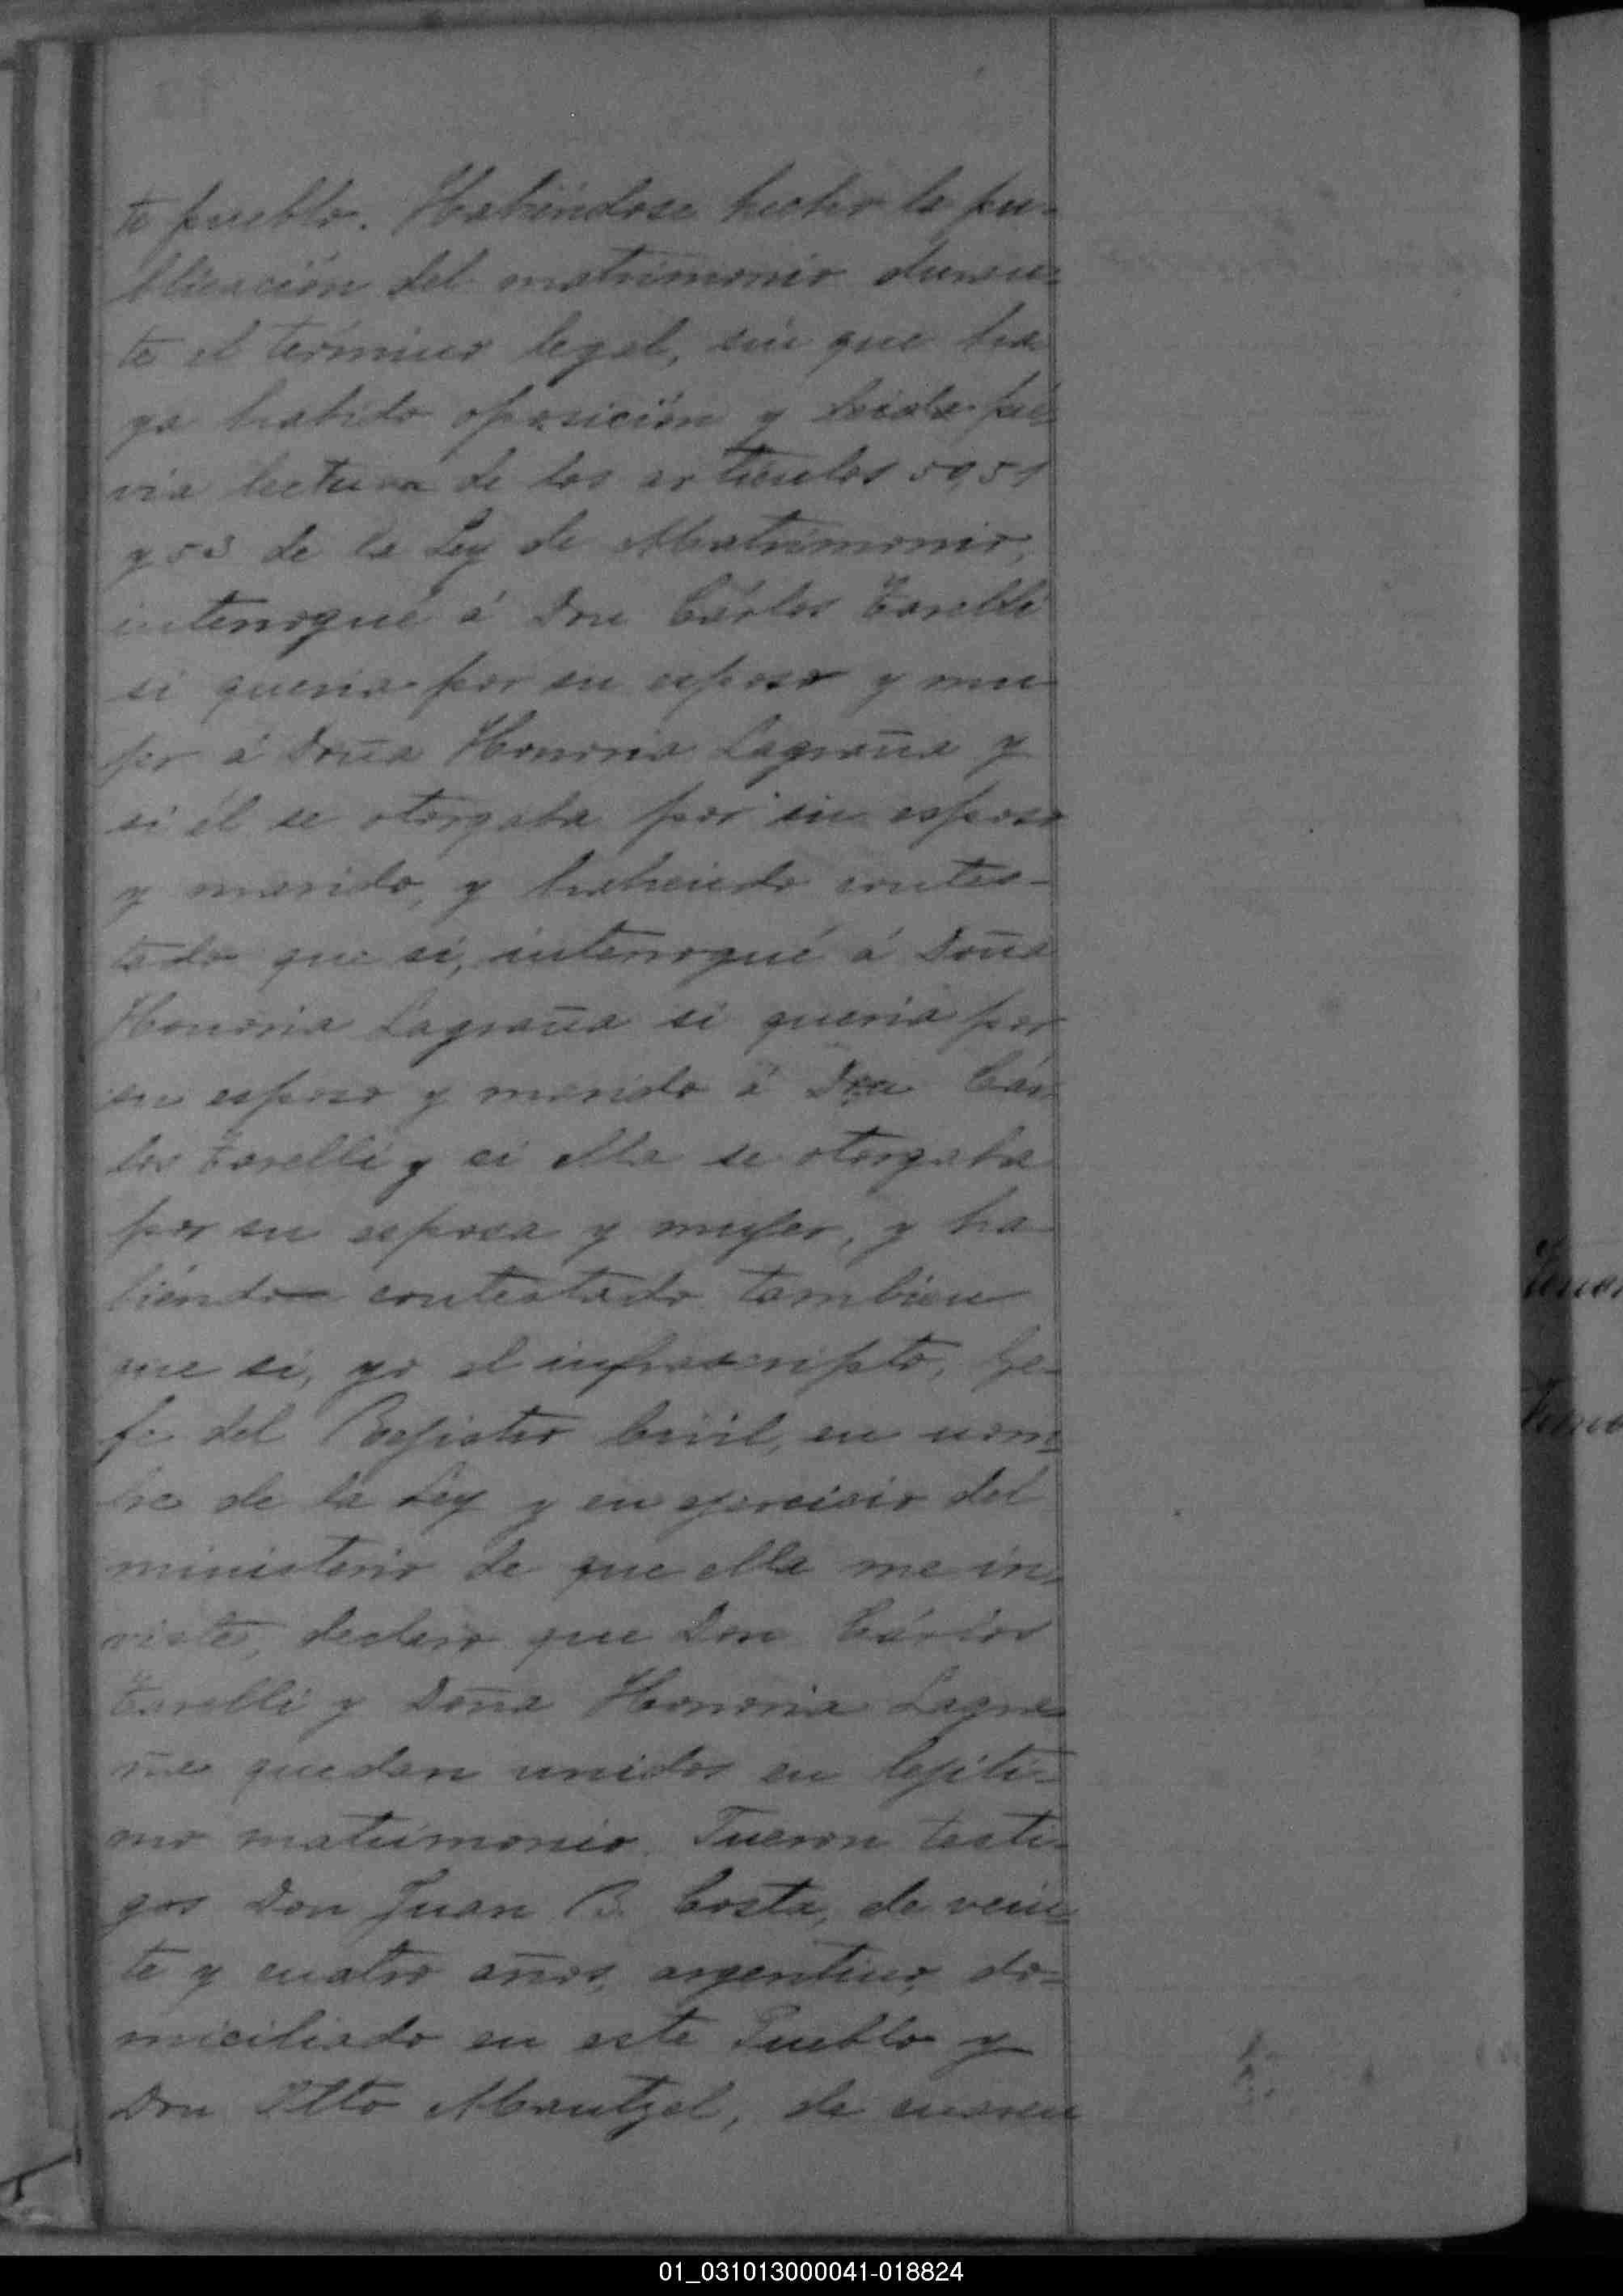 te pueblo. Habiéndose hecho la pu-
blicación del matrimonio duran-
te el término legal, sin que ha
ya habido oposición y pré-
via lectura de los artículos 50, 51
y 53 de la Ley de Matrimonio,
interrogué á Don Cárlos Tarelli
si queria por su esposo y mu
jer á Doña Honoria Lagraña y
si él se otorgaba por su esposo
y marido, y habiendo contes-
tado que sí, interrogué á Doña
Honoria Lagraña si queria por
su esposo y marido á Don Cár
los Tarelli y si ella se otorgaba
por su esposa y mujer, y ha
biendo contestado tambien
que sí, yo el infrascripto, Ge-
fe del Registro Civil, en nom-
bre de la Ley y en ejercicio del
ministerio de que ella me in-
viste, declaro que Don Cárlos
Tarelli y Doña Honoria Lagra-
ña quedan unidos en legíti-
mo matrimonio. Fueron testi-
gos Don Juan B. Costa, de vein-
te y cuatro años, argentino, do-
miciliado en este Pueblo y
Don Otto Mantzel, de cuaren
01_031013000041-018824